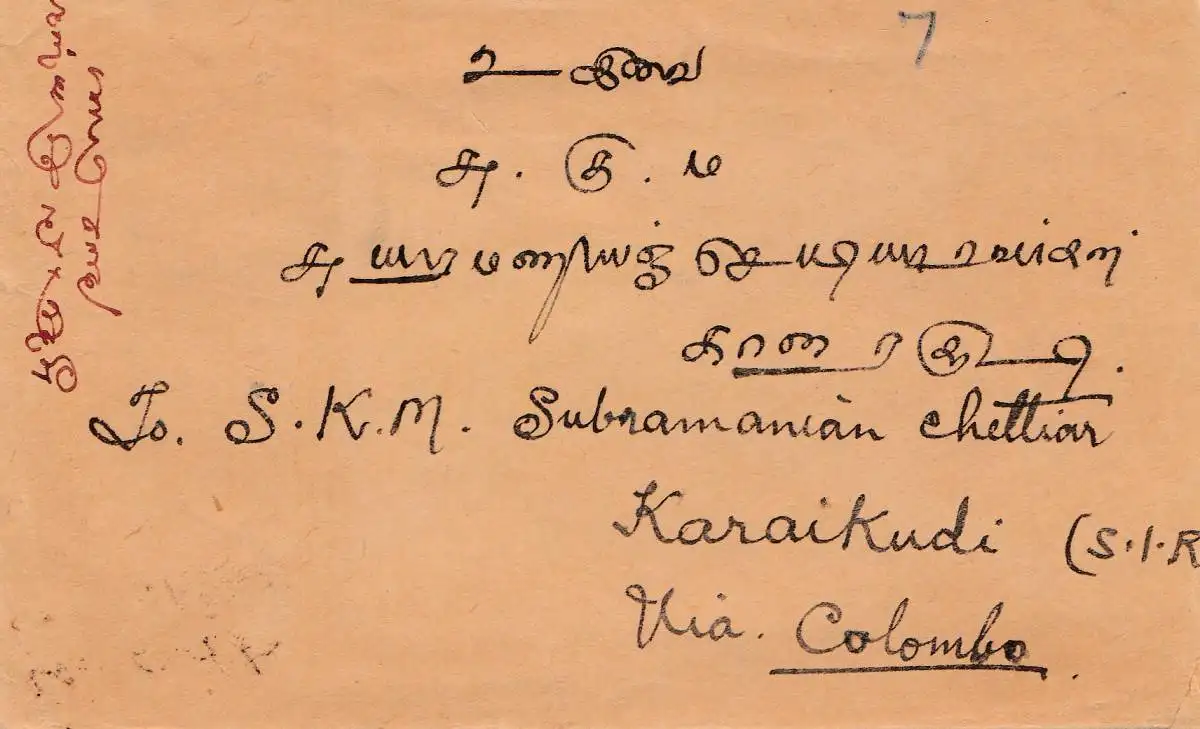 7
உ
சு . கு . ம
சுப்பரமணியஞ் செட்டியாரவர்கள்
காரைக்குடி .
To. S.K.M. Subramanian Chettiar
Karaikudi (S.I.R
Via. Colombo.